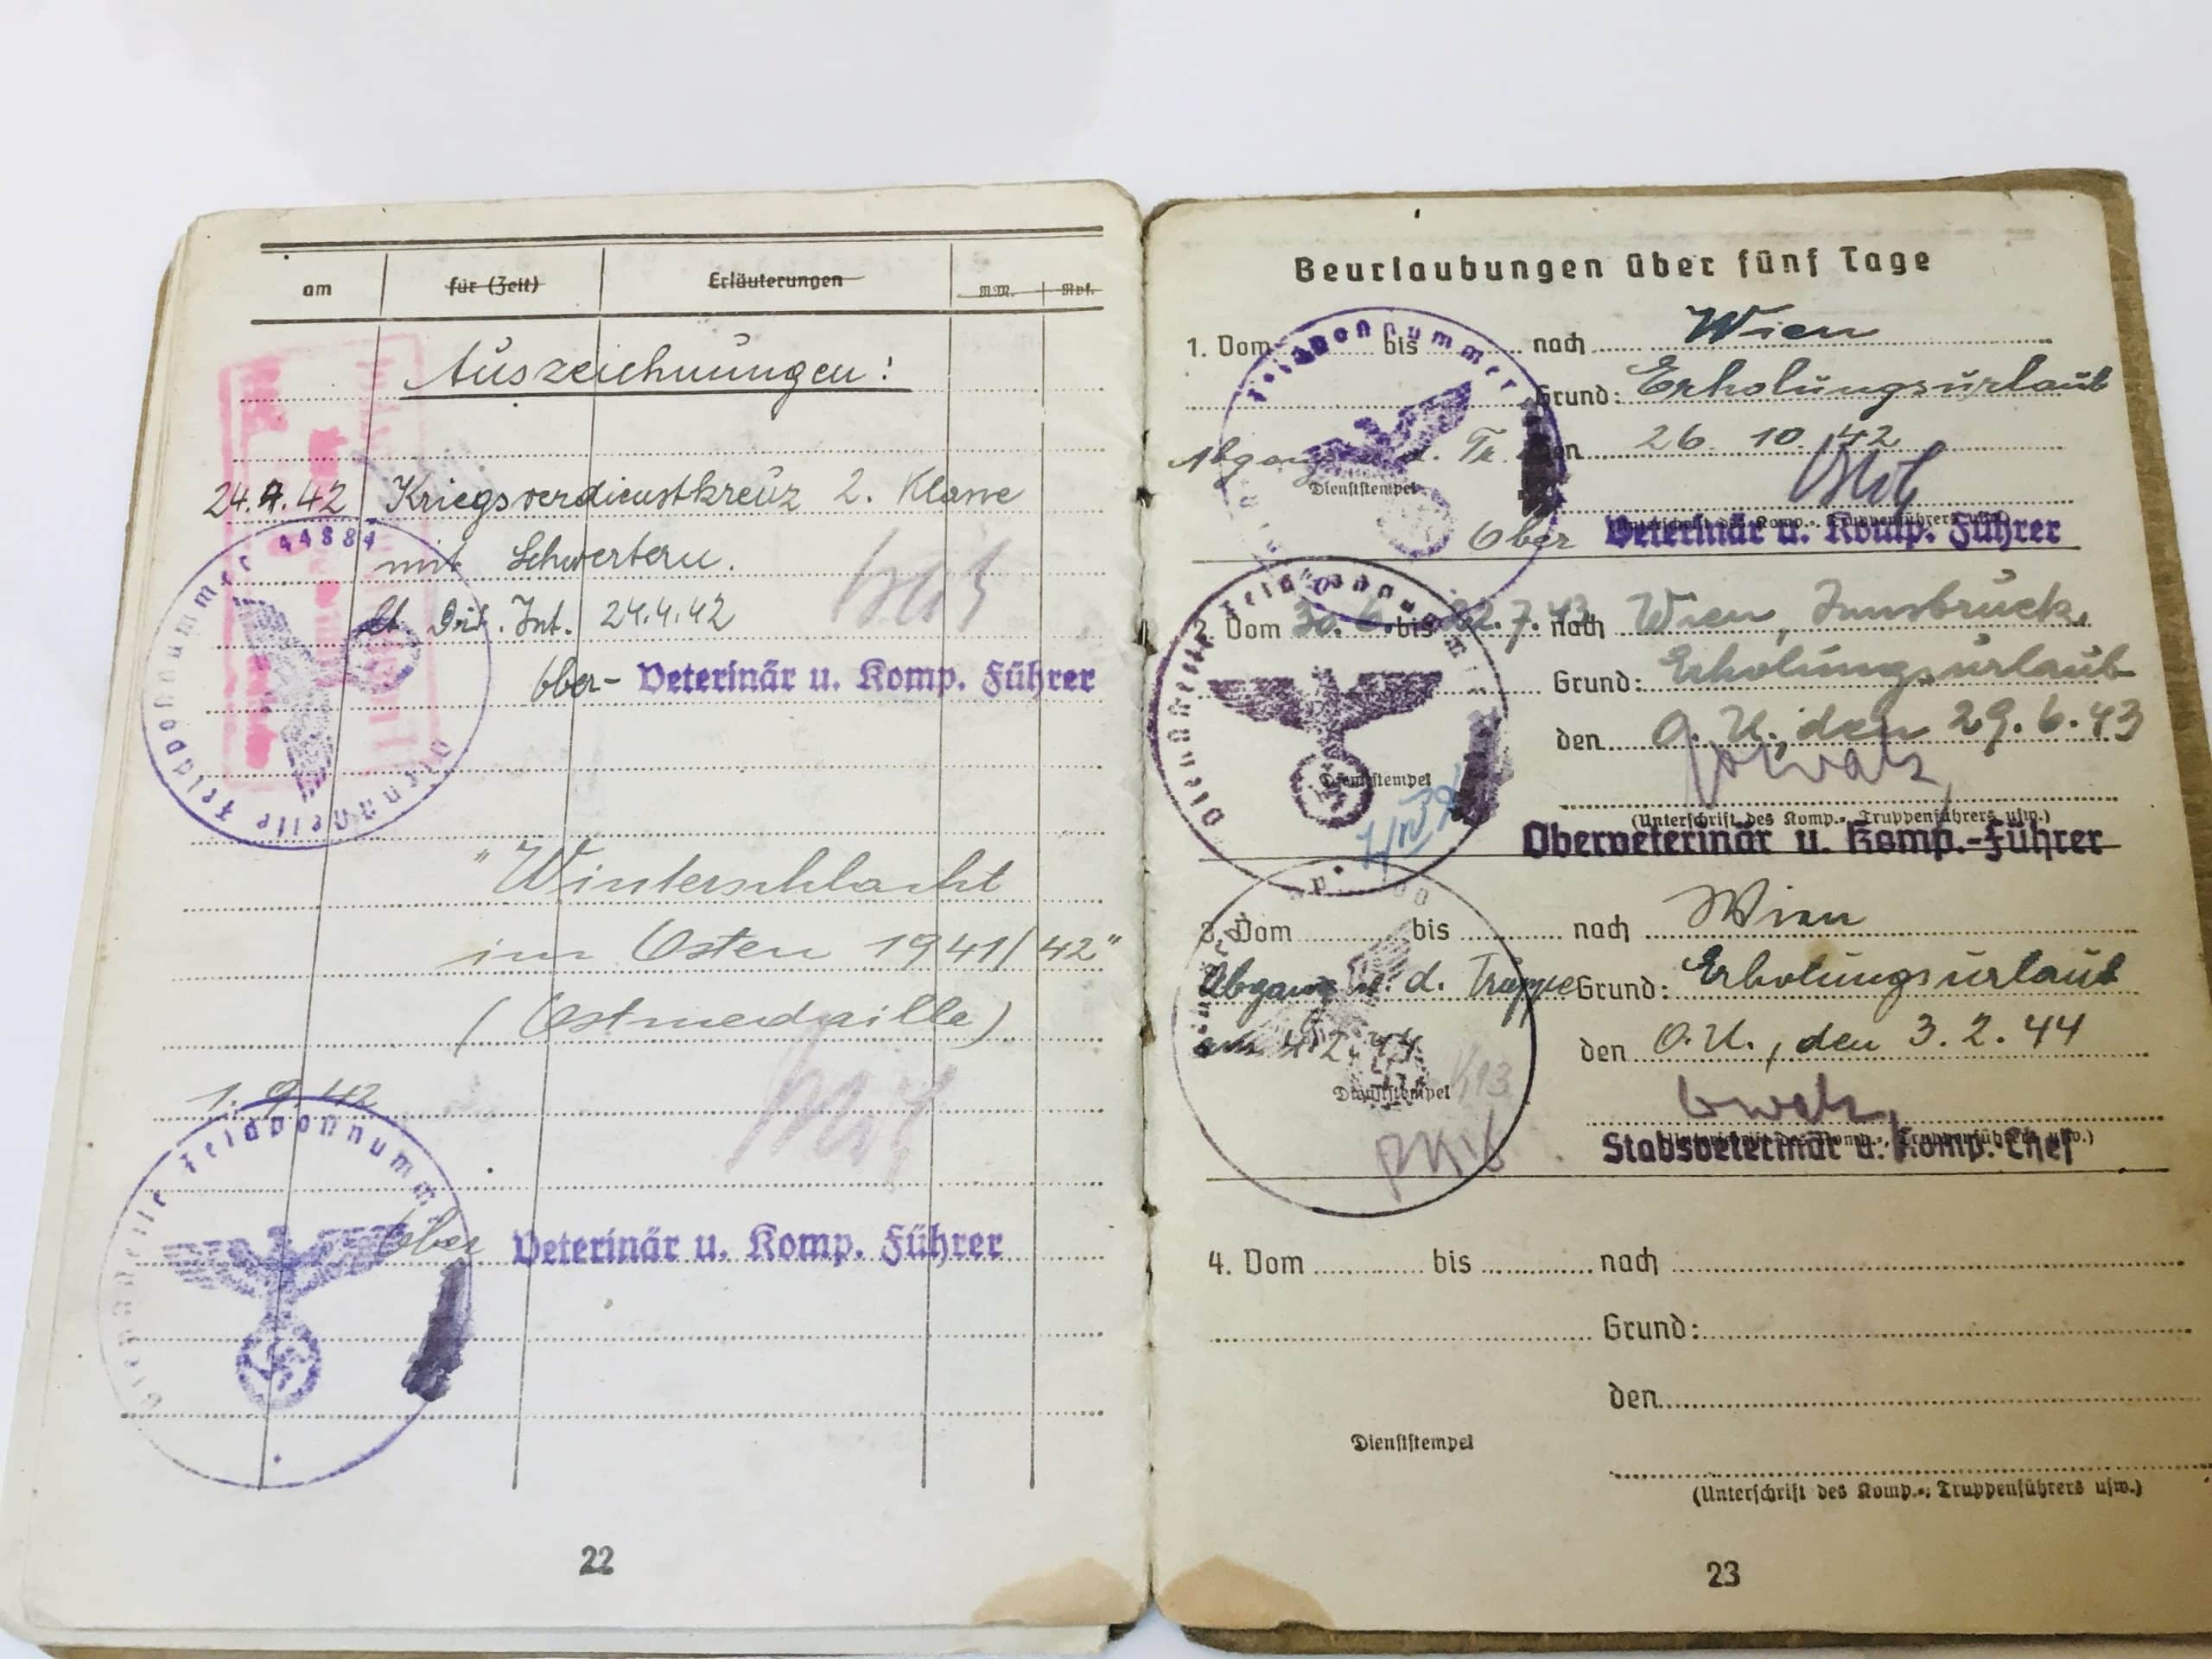 am für (Zeit) Erläuterungen RM. Rpf.
Auszeichnungen:
24.4.42 Kriegsverdienstkreuz 2. Klasse
mit Schwertern.
lt. Div. Int. 24.4.42
Ober- Veterinär u. Komp. Führer
Dienststelle Feldpostnummer 44884
"Winterschlacht
im Osten 1941/42"
(Ostmedaille)
1. 9. 42
Dienststelle Feldpostnumm
Ober Veterinär u. Komp. Führer
22
Beurlaubungen über fünf Tage
1. Vom bis nach Wien
Feldpostnummer
Grund: Erholungsurlaub
Abgang d. Tr. den 26. 10. 42
Dienststempel
(Unterschrift des Komp.-, Truppenführers usw.)
Ober Veterinär u. Komp. Führer
2. Vom 30. 6. bis 22. 7. 43 nach Wien, Innsbruck,
Dienststelle Feldpostnumm
Grund: Erholungsurlaub
den O. U., den 29. 6. 43
Dienststempel
(Unterschrift des Komp.-, Truppenführers usw.)
Oberveterinär u. Komp.-Führer
3. Vom bis nach Wien
Abgang v. d. Truppe Grund: Erholungsurlaub
am 4. 2. 44 den O. U., den 3. 2. 44
Dienststempel
(Unterschrift des Komp.-, Truppenführers usw.)
Stabsveterinär u. Komp.-Chef
4. Vom bis nach
Grund:
den
Dienststempel
(Unterschrift des Komp.-, Truppenführers usw.)
23